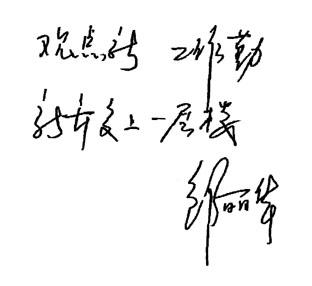 观点新 工作勤
新年更上一层楼
邹丽华